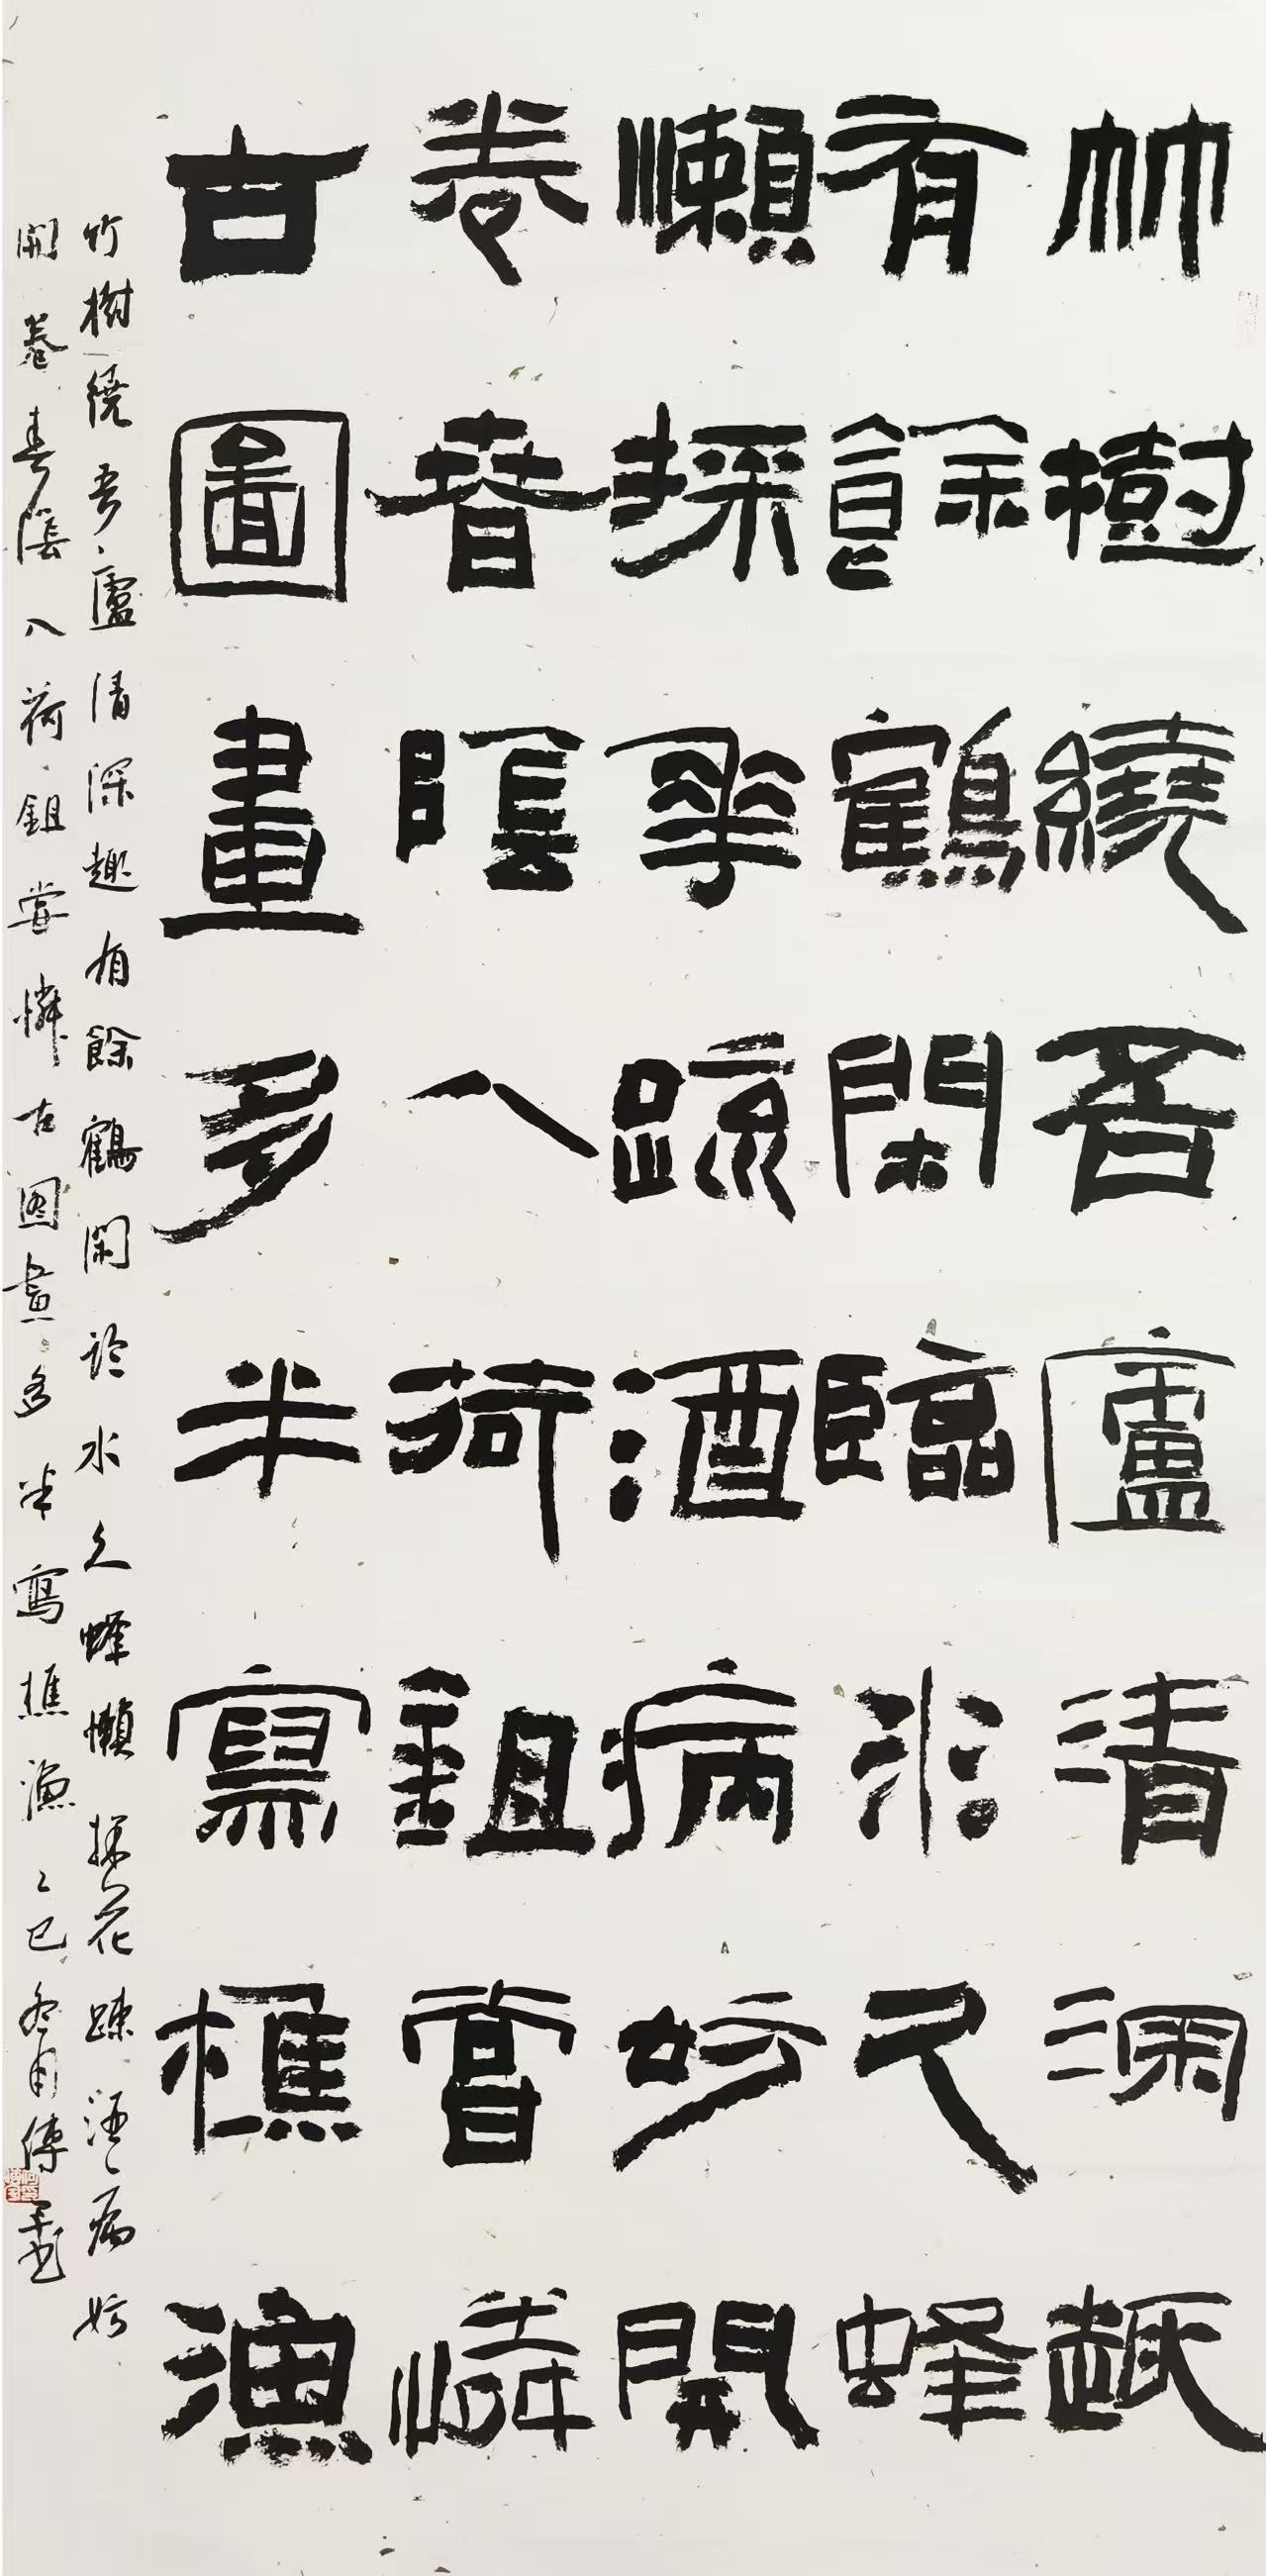 竹樹繞吾廬清深趣
有餘鶴閑臨水久蜂
懶採花疏酒病妨開
卷春陰入荷鉏嘗憐
古圖畫多半寫樵漁
竹樹繞吾廬清深趣有餘鶴閑臨水久蜂懶採花疎酒病妨
開卷春陰入荷鉏嘗憐古圖畫多半寫樵漁乙巳冬月傳